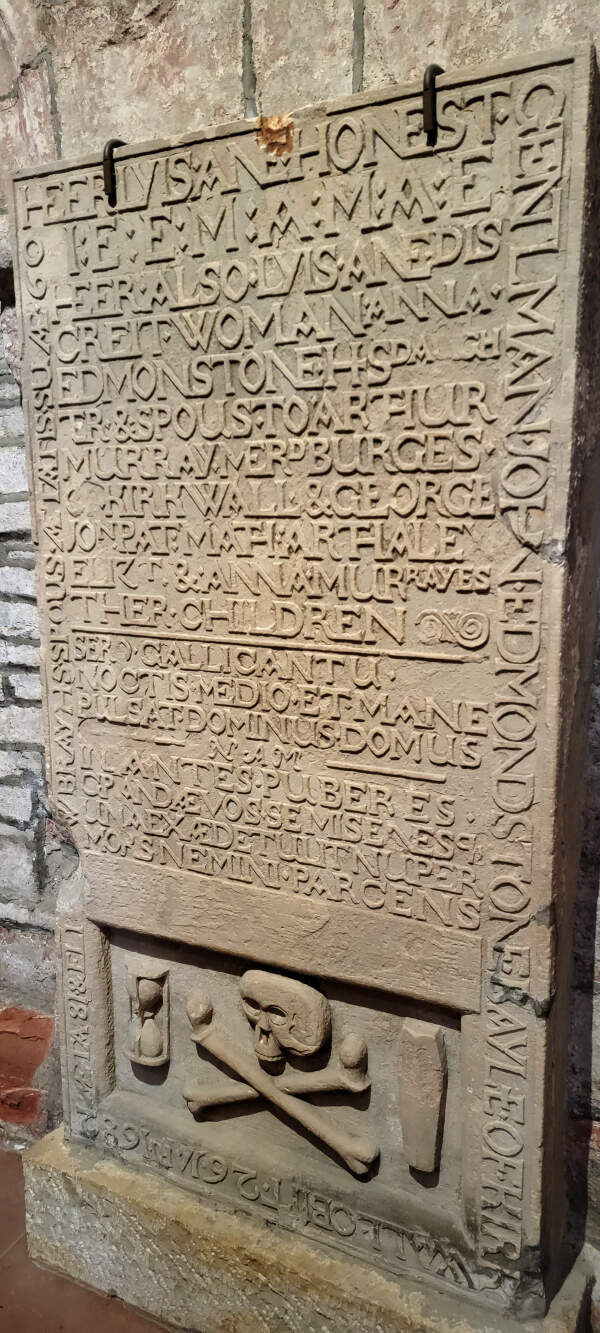 HEER·LVIS·ANE·HONEST·
GENTLMAN·IOHNE·EDMONDSTONE
OF·KIR
WALL·OBIIT·26·IVL
HIS·SPOUS·ÆTATIS·SUÆ·60
I·E:E:M:A:M:A:E
HEER·ALSO·LVIS·ANE·DIS
CREIT·WOMAN·ANNA·
EDMONSTONE·HIS DAUGH
TER·&·SPOUS·TO·ARTHUR
MURRAY·MERD·BURGES·
KIRKWALL & GEORGE
JON·PAT·MAT·ARTH·ALEX
ELIZT·&·ANNA·MURRAYES
THER·CHILDREN
SERO·GALLICANTU·
NOCTIS·MEDIO·ET·MANE
PULSAT·DOMINIUS·DOMUS
NAM
INFANTES·PUBERES·
GRANDÆVOS·SEMISENESQ
UNA EX ÆDE TULIT NUPER
MORS NEMINI·PARCENS